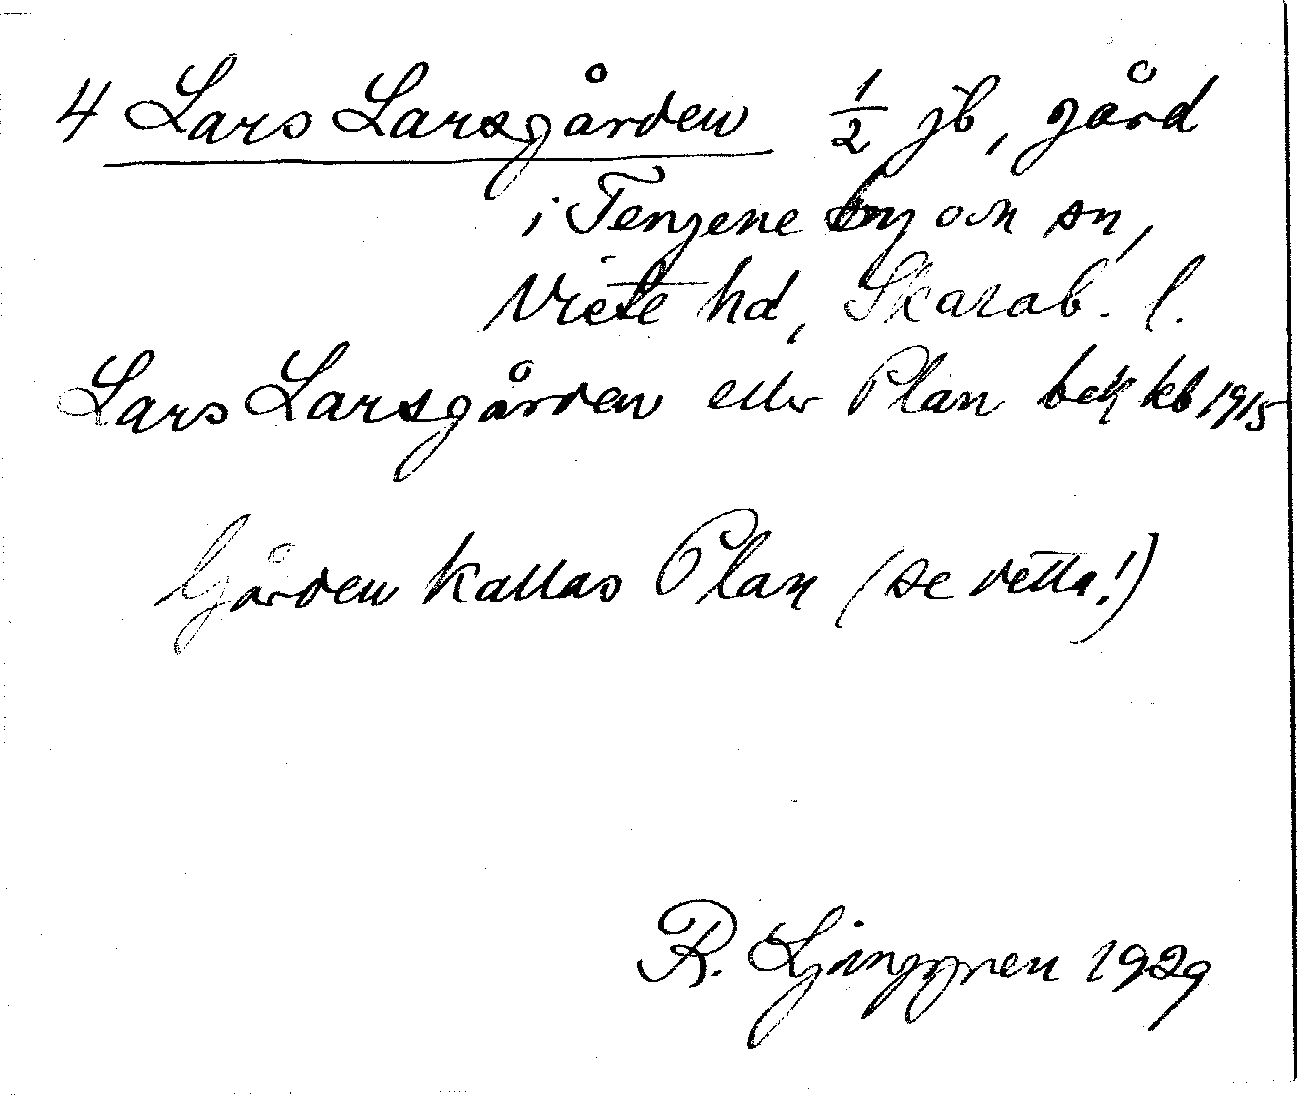 4 Lars Larsgården 1/2 jb, gård
i Tengene by och sn,
Viste hd, Skarab. l.
Lars Larsgården eller Plan bek kb 1915
Gården kallas Plan (se detta!)
R. Ljunggren 1929